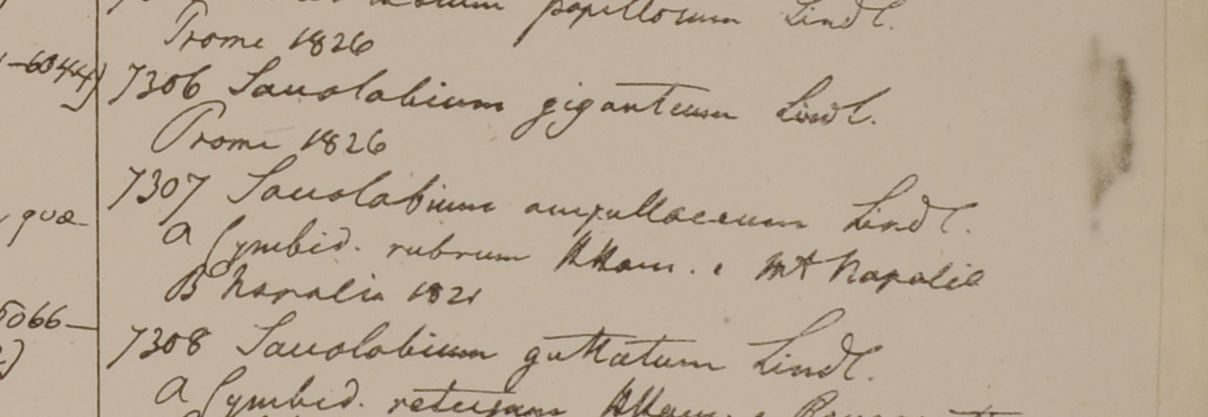 papillosum Lindl.
Prome 1826
-6044)
7306 Saccolabium giganteum Lindl.
Prome 1826
7307 Saccolabium ampullaceum Lindl.
quæ
a Cymbid. rubrum HHam. e Mt Napaliæ
B Napalia 1821
5066—
7308 Saccolabium guttatum Lindl.
a Cymbid. retusum HHam. e